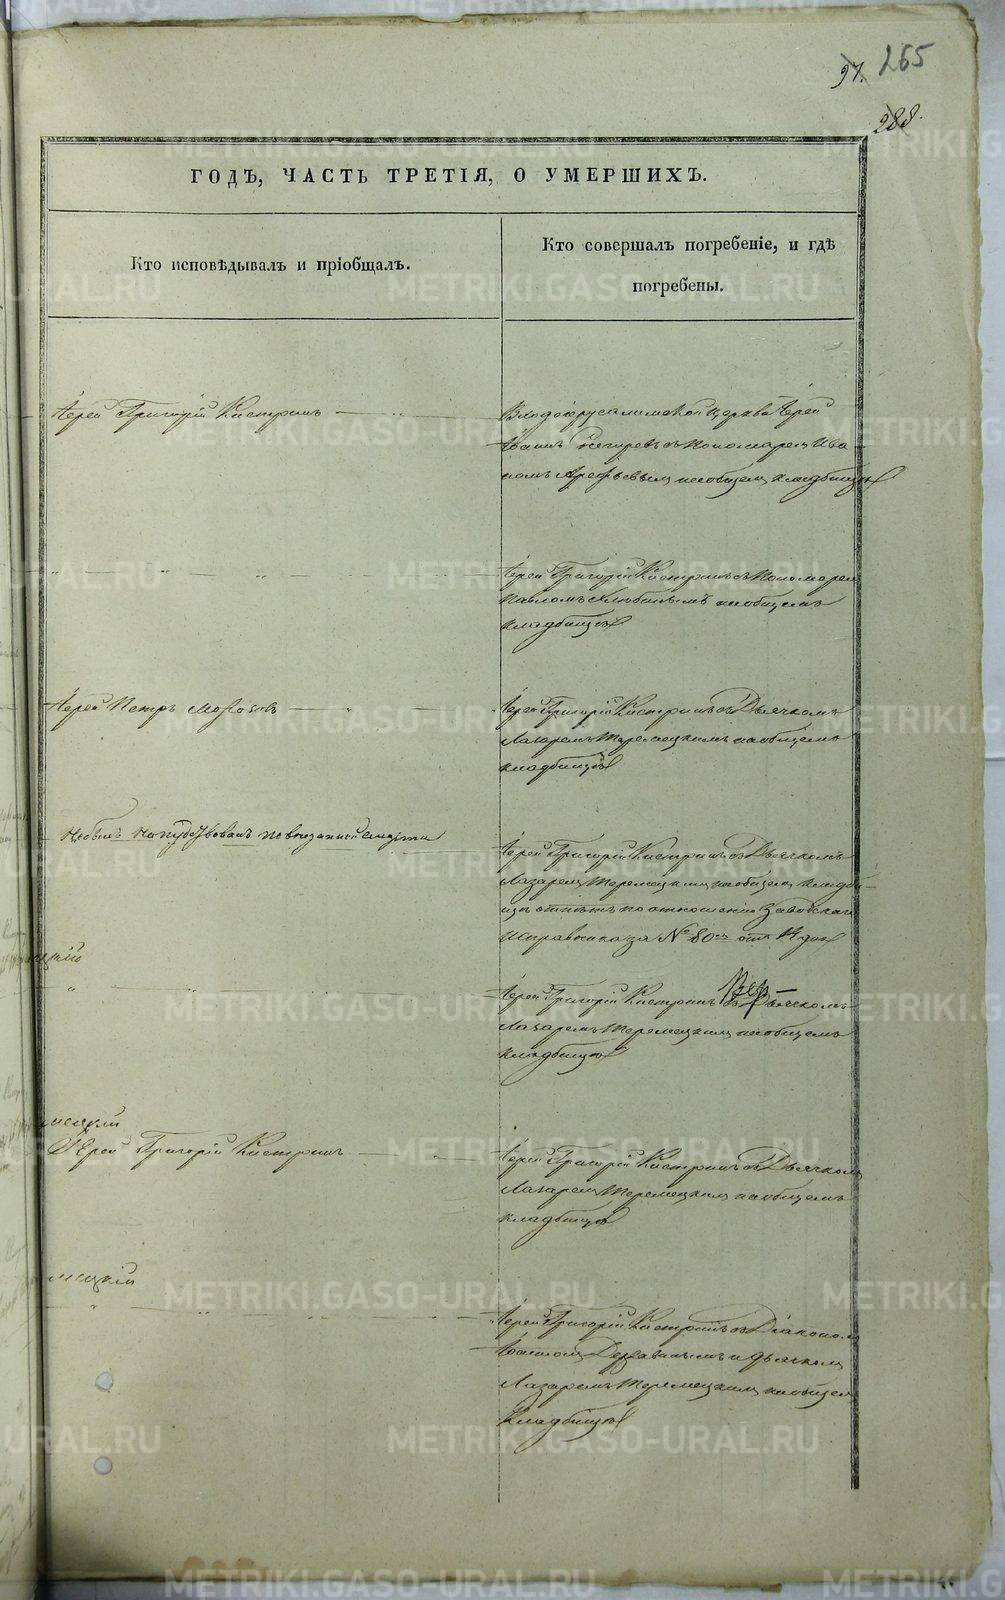 97. 265
288.
ГОДЪ, ЧАСТЬ ТРЕТІЯ, О УМЕРШИХЪ.
Кто исповѣдывалъ и пріобщалъ.
Кто совершалъ погребеніе, и гдѣ
погребены.
Іерей Григорій Кастринъ
Входоіерусалимской церкви Іерей
Іоаннъ съ Пономаремъ Ива
номъ Арефьевымъ на общемъ кладбищѣ
Іерей Григорій Кастринъ съ Пономаремъ
Павломъ на общемъ
кладбищѣ
Іерей Петръ
Іерей Григорій Кастринъ съ Дьячкомъ
Лазаремъ Теремецкимъ на общемъ
кладбищѣ
Небылъ напутствованъ по внезапной смерти
Іерей Григорій Кастринъ съ Дьячкомъ
Лазаремъ Теремецкимъ на общемъ кладби-
щѣ отпѣтъ по отношенію Заводскаго
Исправника за № 80 отъ 14
Іерей Григорій Кастринъ съ Дьячкомъ
Лазаремъ Теремецкимъ на общемъ
кладбищѣ
мецкій
Іерей Григорій Кастринъ
Іерей Григорій Кастринъ съ Дьячкомъ
Лазаремъ Теремецкимъ на общемъ
кладбищѣ
мецкій
Іерей Григорій Кастринъ съ Діакономъ
Іоанномъ Державинымъ и дьячкомъ
Лазаремъ Теремецкимъ на общемъ
кладбищѣ
METRIKI.GASO-URAL.RU